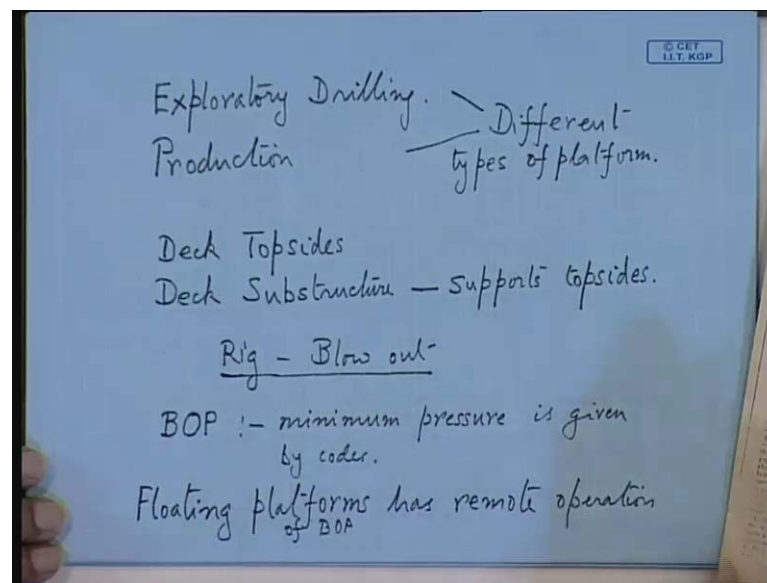 © CET
I.I.T. KGP
Exploratory Drilling.
Different
Production
types of platform.
Deck Topsides
Deck Substructure — Supports topsides.
Rig - Blow out
BOP :- minimum pressure is given
by codes.
Floating platforms has remote operation
of BOP